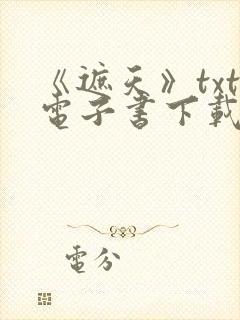 《遮天》txt
電子書下載
電分